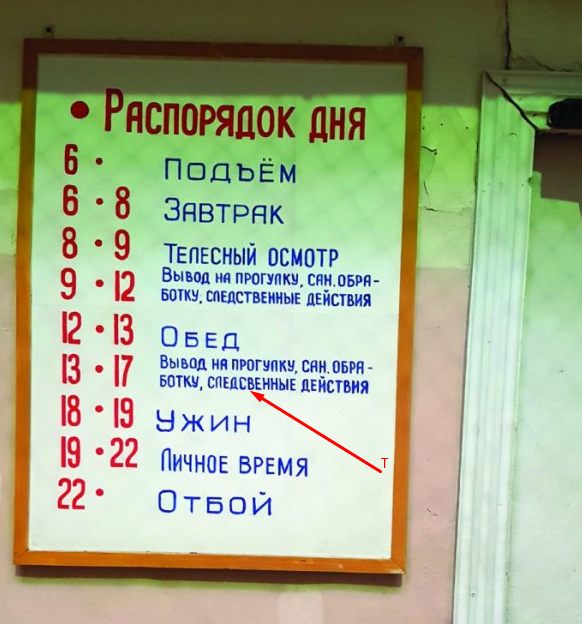 • Распорядок дня
6 • Подъём
6 • 8 Завтрак
8 • 9 Телесный осмотр
9 • 12 Вывод на прогулку, сан. обра-
ботку, следственные действия
12 • 13 Обед
13 • 17 Вывод на прогулку, сан. обра-
ботку, следсвенные действия
18 • 19 Ужин
Т
19 • 22 Личное время
22 • Отбой